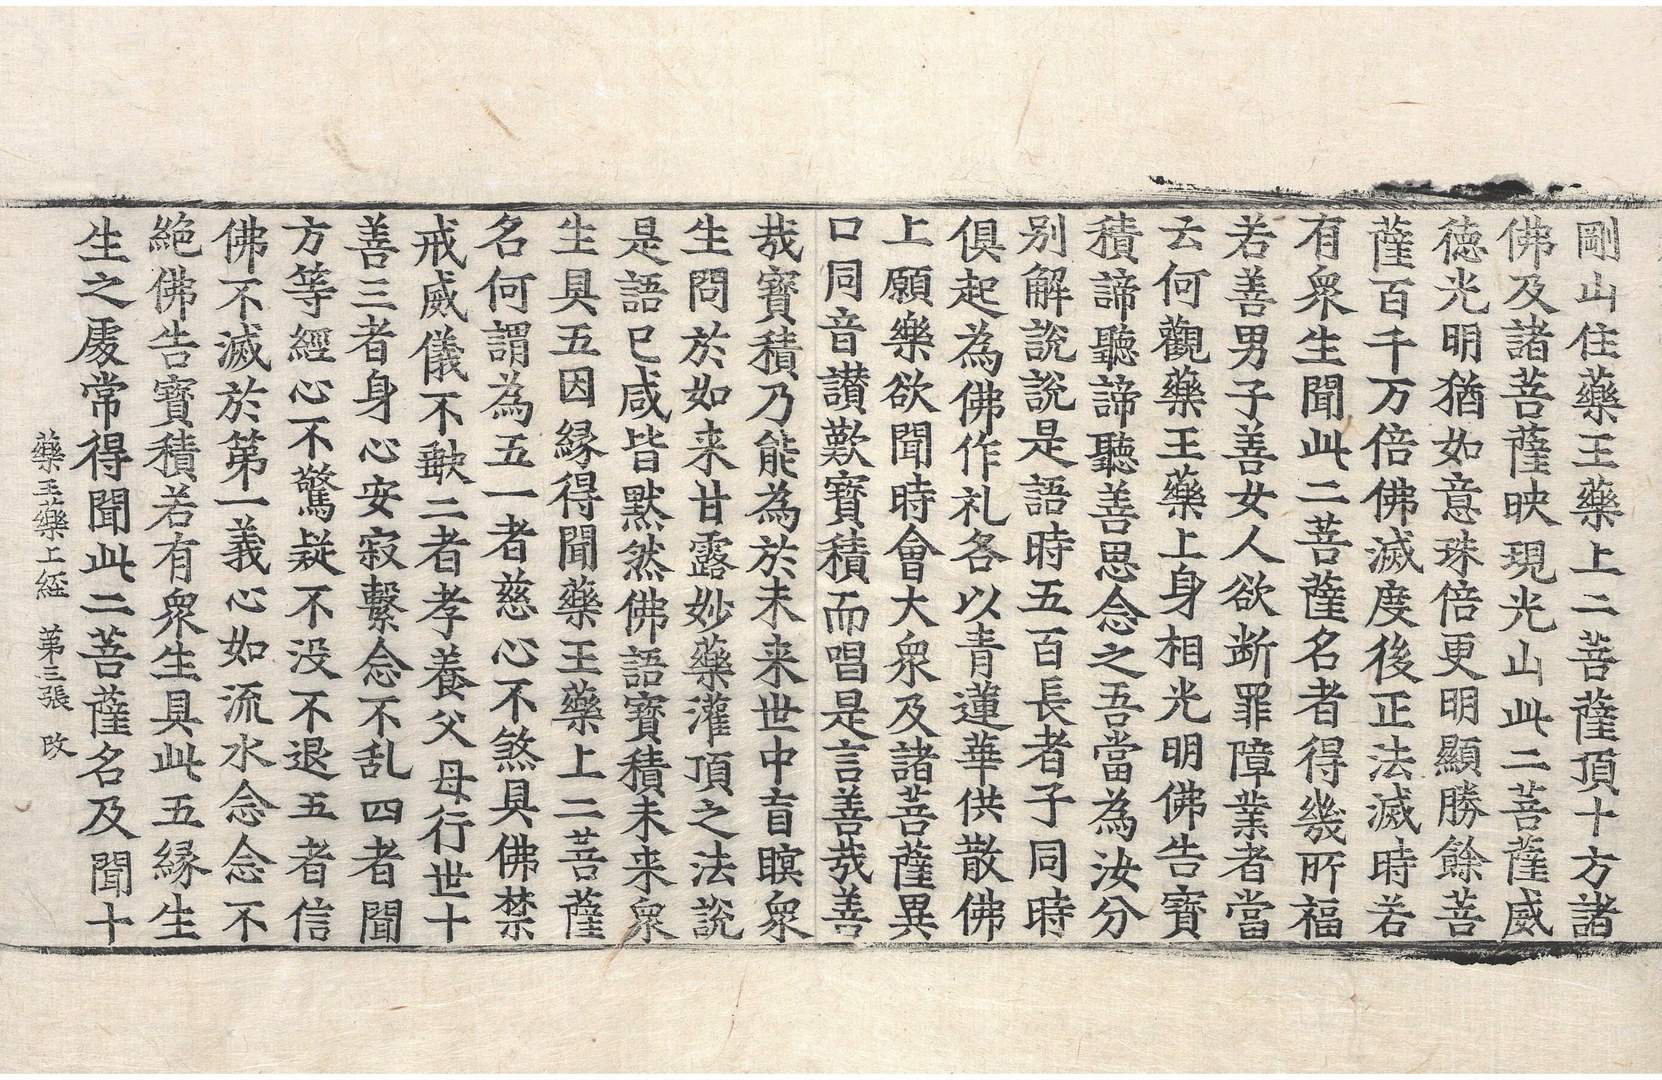 剛山住藥王藥上二菩薩頂十方諸
佛及諸菩薩映現光山此二菩薩威
德光明猶如意珠倍更明顯勝餘菩
薩百千万倍佛滅度後正法滅時若
有衆生聞此二菩薩名者得幾所福
若善男子善女人欲断罪障業者當
云何觀藥王藥上身相光明佛告寶
積諦聽諦聽善思念之吾當為汝分
別解說說是語時五百長者子同時
俱起為佛作礼各以青蓮華供散佛
上願樂欲聞時會大衆及諸菩薩異
口同音讃歎寶積而唱是言善哉善
哉寶積乃能為於未来世中盲瞑衆
生問於如来甘露妙藥灌頂之法說
是語已咸皆默然佛語寶積未来衆
生具五因緣得聞藥王藥上二菩薩
名何謂為五一者慈心不煞具佛禁
戒威儀不缺二者孝養父母行世十
善三者身心安寂繫念不乱四者聞
方等經心不驚疑不没不退五者信
佛不滅於第一義心如流水念念不
絶佛告寶積若有衆生具此五緣生
生之處常得聞此二菩薩名及聞十
藥王藥上經 第三張 改